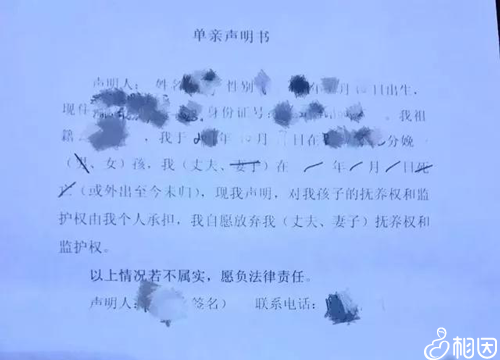 单亲声明书
声明人: 姓名 性别 月 日出生,
现住 身份证号: 。我祖
籍 ,我于 年 月 日在 分娩一
(男、女)孩,我(丈夫、妻子)在 年 月 日死
亡(或外出至今未归),现我声明,对我孩子的抚养权和监
护权由我个人承担,我自愿放弃我(丈夫、妻子)抚养权和
监护权。
以上情况若不属实,愿负法律责任。
声明人: 签名) 联系电话:
相因